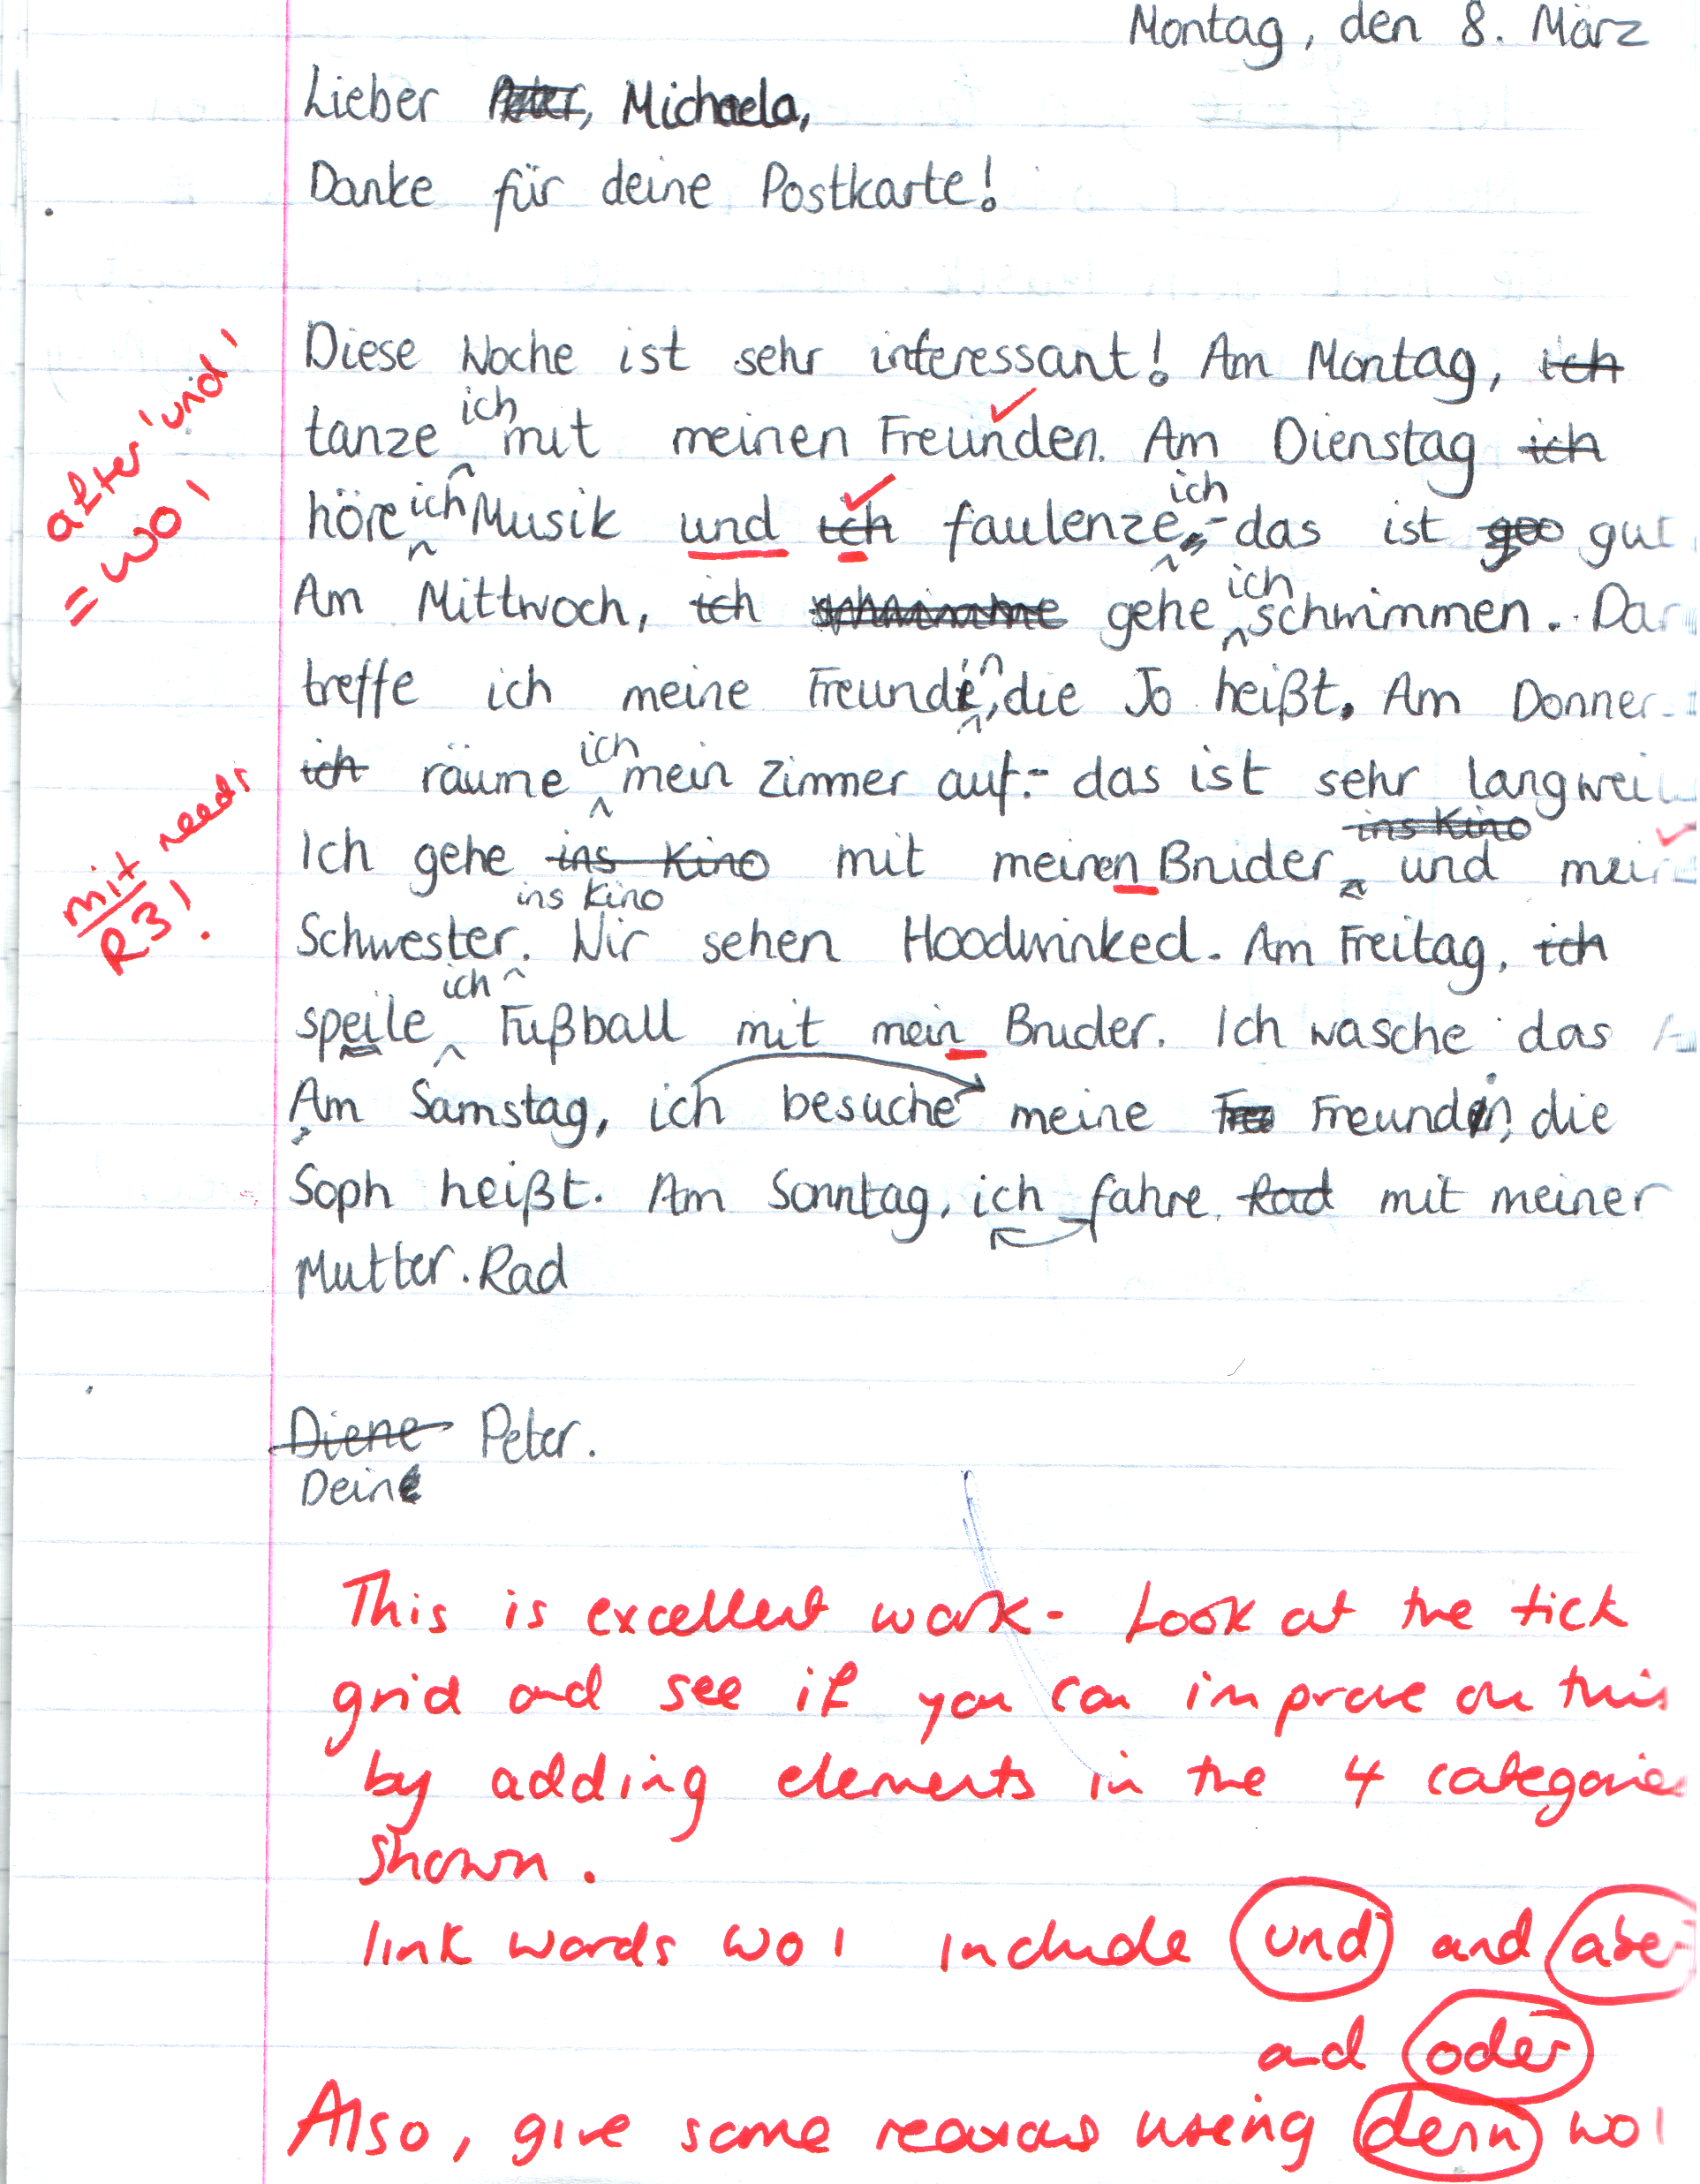 Montag, den 8. März
Lieber Peter, Michaela,
Danke für deine Postkarte!
Diese Woche ist sehr interessant! Am Montag, ich
tanze ich mit meinen Freunden. Am Dienstag ich
höre ich Musik und ich faulenze ich - das ist goo gut
Am Mittwoch, ich schwimme gehe ich schwimmen. Dar
treffe ich meine Freundin, die Jo heißt. Am Donner
ich räume ich mein Zimmer auf - das ist sehr langwei
ins Kino
Ich gehe ins Kino mit meinen Bruder und mein
ins Kino
Schwester. Wir sehen Hoodwinked. Am Freitag, ich
speile ich Fußball mit mein Bruder. Ich wasche das
Am Samstag, ich besuche meine Fre Freundin, die
Soph heißt. Am Sonntag, ich fahre Rad mit meiner
Mutter. Rad
Diene Peter.
Dein
after 'und'
= WO1
mit needs
R3!
This is excellent work - Look at the tick
grid and see if you can improve on this
by adding elements in the 4 categories
shown.
link words WO1 include und and aber
and oder
Also, give some reasons using denn WO1